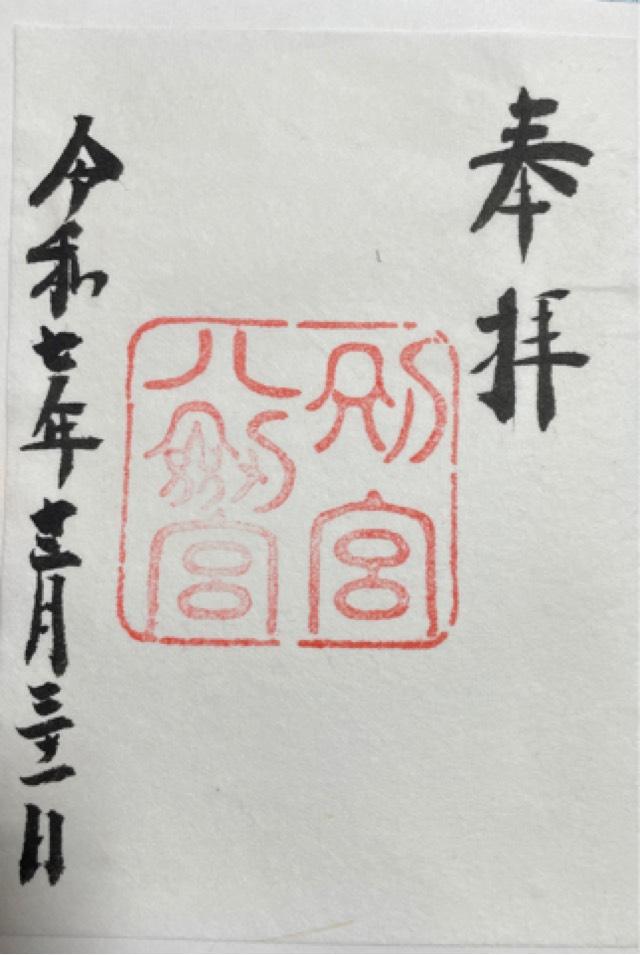 奉拝
別宮
八劔宮
令和七年十二月三十一日